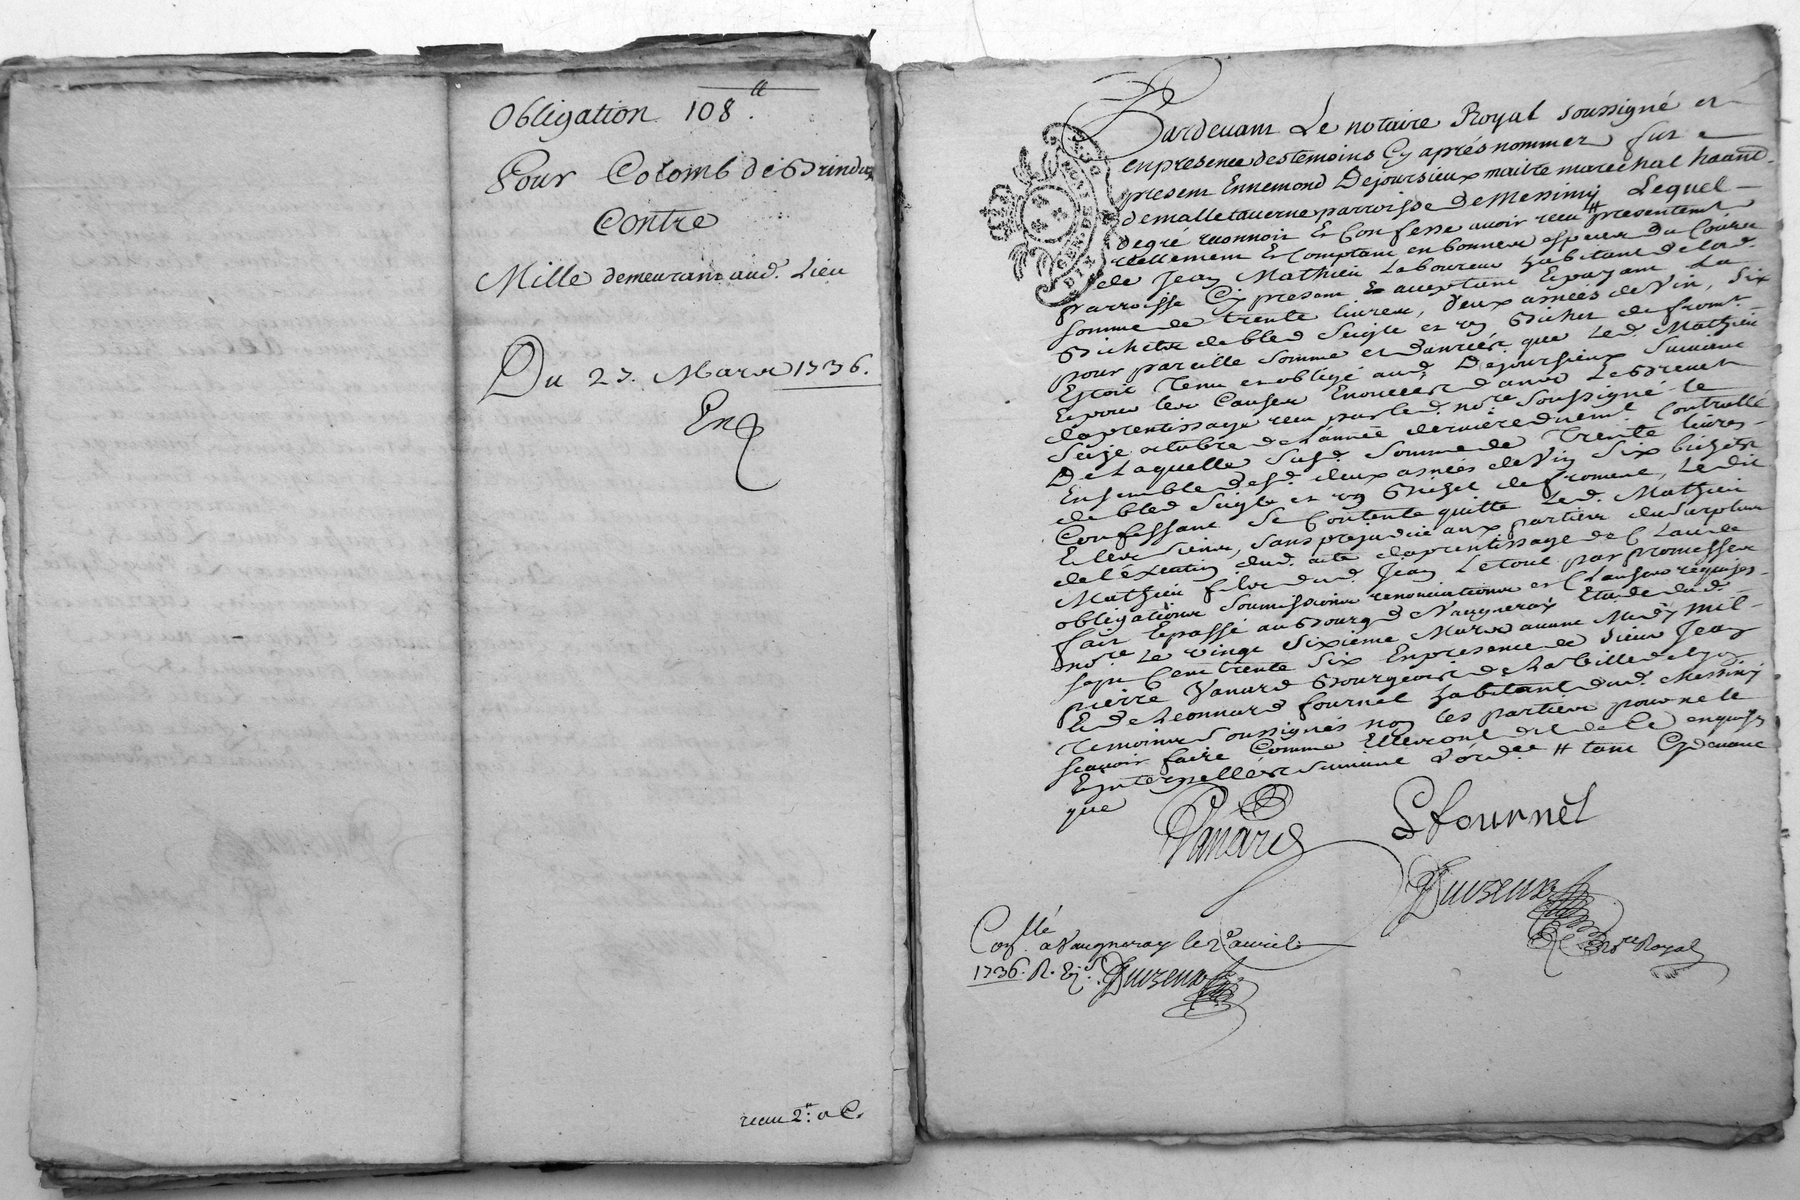 Obligation 108ᵗᵗ
Pour Colomb de Brindas
Contre
Mille demeurant aud. Lieu
Du 27. Mars 1736.
reçu 2ᵗᵗ: a C.
GEN. DE LYON
DIX
Pardevant Le notaire Royal soussigné et
en presence des temoins Cy aprés nommer fut
present Ennemond Dejoursieux maitre marechal haband.
de malletaverne parroisse de Messimy Lequel
de gré reconnoit et Confesse avoir receu # presentemt
réellement et Comptant en bonnes espèces du Cours
de Jean Mathieu Laboureur habitant de lad.
parroisse Cy present et acceptant Et payant La
somme de trente livres, deux asnées de Vin, Six
Bichets de bled Seigle et un Bichet de fromt.
pour pareille somme et danrées que Led. Mathieu
Estoit Tenu et obligé aud. Dejoursieux suivant
Et pour les Causes Enoncées dans Le Brevet
daprentissage receu par led. nore. soussigné le
Seize octobre de l'année derniere duemt. Controllé
De Laquelle susd. somme de Trente livres
Ensemble desd. deux asnées de Vin Six bichets
de bled Seigle et un Bichet de froment, Ledit
Confessant se Contente quitte Led. Mathieu
Et les siens, sans prejudice aux parties du surplus
de l'éxécution dud. acte daprentissage de Claude
Mathieu fils dud. Jean Le tout par promesses
obligations soumissions renonciations et Clauses requises
fait Et passé au Bourg de Vaugneray Etude dud.
nore. Le vingt sixième Mars avant Midy mil
sept Cent trente Six En presence de sieur Jean
pierre Vanard Bourgeois de La Ville de Lyon
Et de Leonnard fournel habitant dud. Messimy
Temoins soussignés non les parties pour ne le
sçavoir faire Comme Elles ont dit de Ce enquises
Et interpellées suivant L'ordce. # tant Cydevant
que
Vanard
L fournel
Duvzeux
nre Royal
Conllé. a Vaugneray le 2e. avril
1736. R. Duvzeux